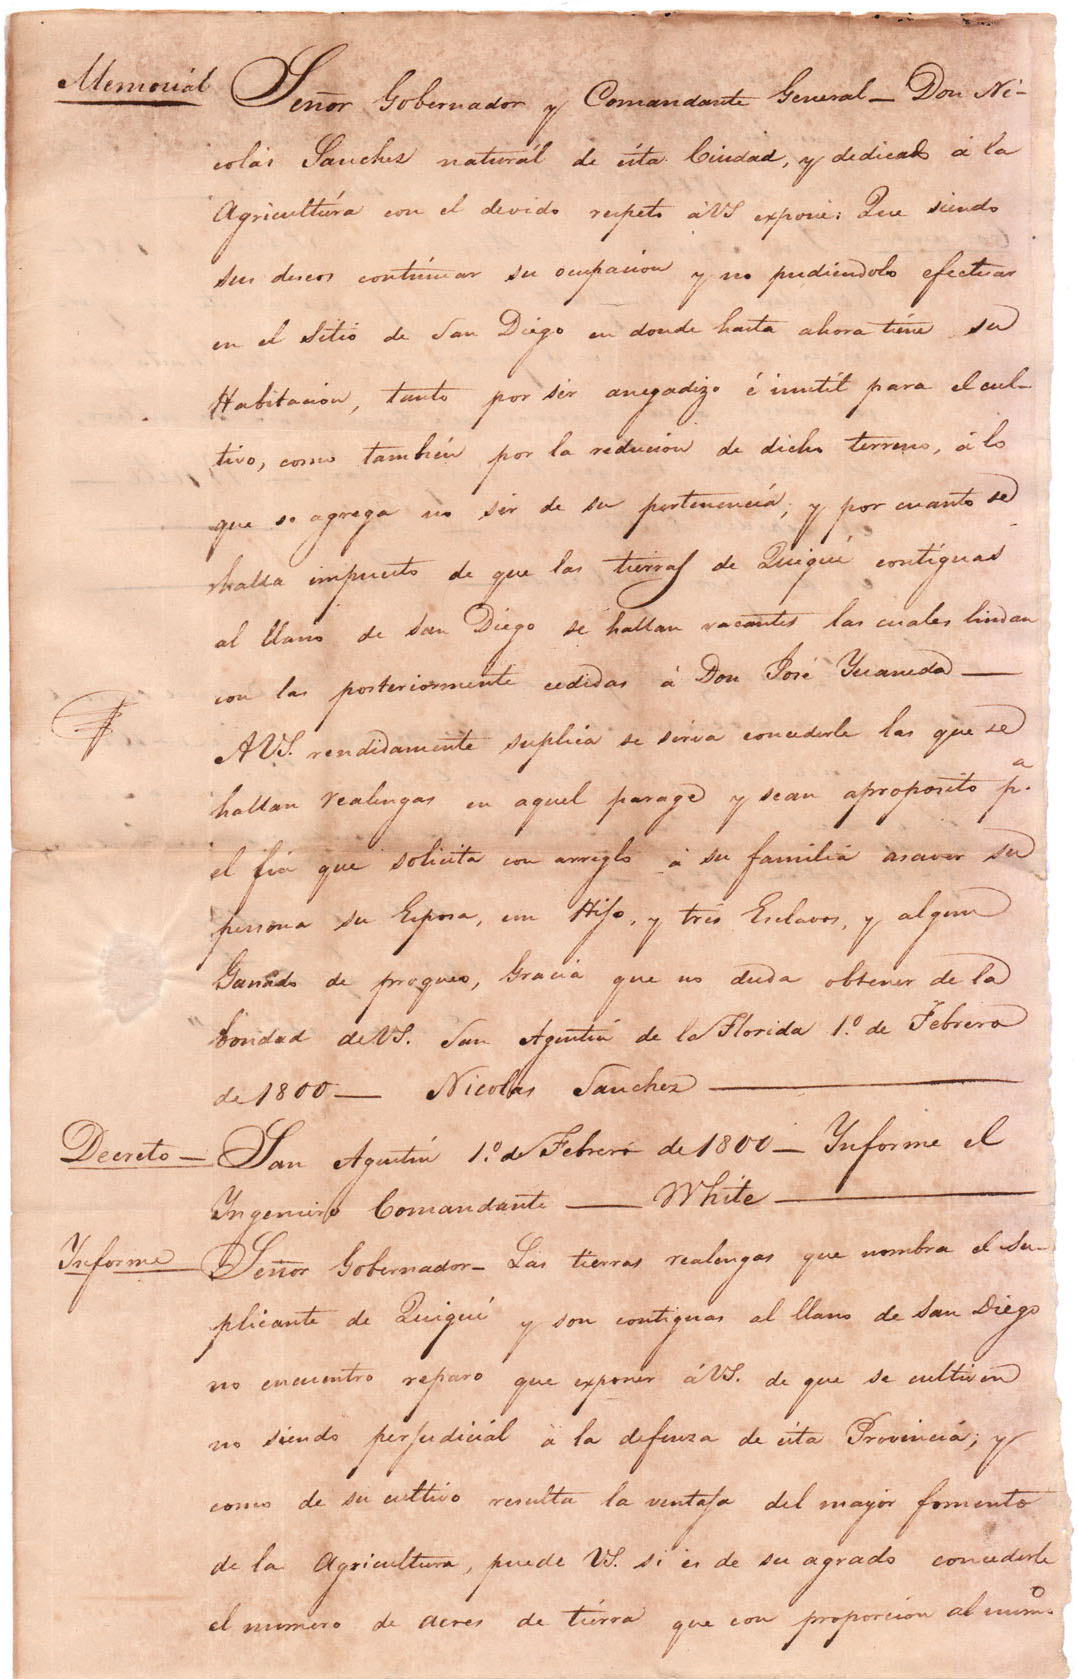 Memoriál Señor Gobernador y Comandante General — Don Ni-
colás Sanchez naturál de ésta Ciudad, y dedicado á la
Agricultúra con el devido respeto á VS expone: Que siendo
sus deseos contínuar su ocupacion y no pudiendolo efectuar
en el Sitio de San Diego en donde hasta ahora tiene su
Habitacion, tanto por ser anegadizo é inutil para el cul-
tivo, como tambien por la reducion de dicho terreno, á lo
que se agrega no ser de su pertenencia; y por cuanto se
halla impuesto de que las tierras de Quiqui contiguas
al llano de San Diego se hallan vacantes las cuales lindan
con las posteriormente cedidas á Don José Ycaneda —
A VS. rendidamente suplica se sirva concederle las que se
hallan realengas en aquel parage y sean aproposito p.a
el fin que solicita con arreglo á su familia asaver su
persona su Esposa, un Hijo, y tres Esclavos, y algun
Ganado de progreo, Gracia que no duda obtener de la
bondad de VS. San Agustin de la Florida 1.o de Febrero
de 1800 — Nicolas Sanchez —
Decreto — San Agustin 1.o de Febrero de 1800 — Ynforme el
Yngeniero Comandante — White —
Ynforme Señor Gobernador — Las tierras realengas que nombra el Su-
plicante de Quiqui y son contiguas al llano de San Diego
no encuentro reparo que exponer á VS. de que se cultiven
no siendo perjudiciál á la defenza de ésta Provincia; y
como de su cultivo resulta la ventaja del mayor fomento
de la Agricultura, puede VS. si es de su agrado concederle
el numero de acres de tierra que con proporcion al numo